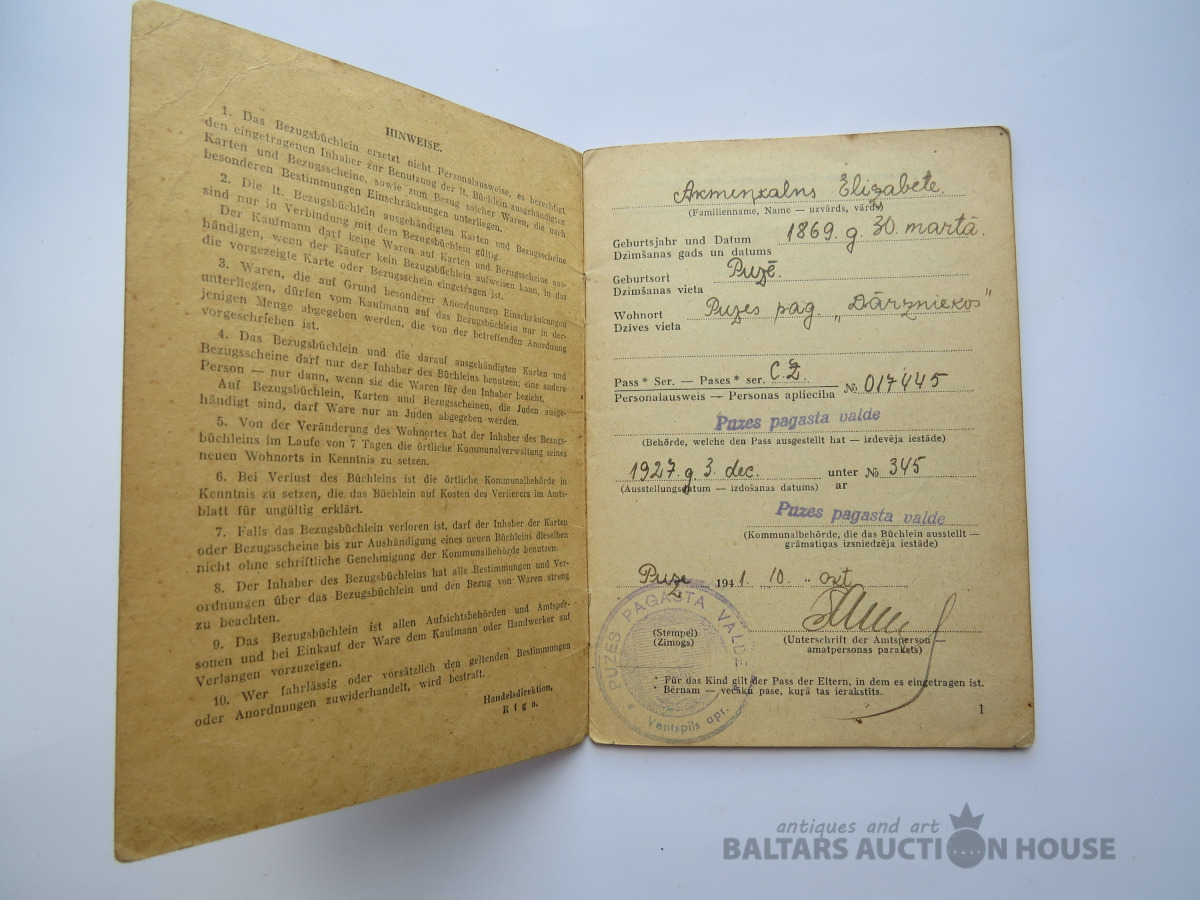 HINWEISE.
1. Das Bezugsbüchlein ersetzt nicht Personalausweise, es berechtigt
den eingetragenen Inhaber zur Benutzung der lt. Büchlein ausgehändigten
Karten und Bezugsscheine, sowie zum Bezug solcher Waren, die nach
besonderen Bestimmungen Einschränkungen unterliegen.
2. Die lt. Bezugsbüchlein ausgehändigten Karten und Bezugsscheine
sind nur in Verbindung mit dem Bezugsbüchlein gültig.
Der Kaufmann darf keine Waren auf Karten und Bezugsscheine aus-
händigen, wenn der Käufer kein Bezugsbüchlein aufweisen kann, in das
die vorgezeigte Karte oder Bezugsschein eingetragen ist.
3. Waren, die auf Grund besonderer Anordnungen Einschränkungen
unterliegen, dürfen vom Kaufmann auf das Bezugsbüchlein nur in der-
jenigen Menge abgegeben werden, die von der betreffenden Anordnung
vorgeschriehen ist.
4. Das Bezugsbüchlein und die darauf ausgehändigten Karten und
Bezugsscheine darf nur der Inhaber des Büchleins benutzen; eine andere
Person — nur dann, wenn sie die Waren für den Inhaber bezieht.
Auf Bezugsbüchlein, Karten und Bezugsscheinen, die Juden ausge-
händigt sind, darf Ware nur an Juden abgegeben werden.
5. Von der Veränderung des Wohnortes hat der Inhaber des Bezugs-
büchleins im Laufe von 7 Tagen die örtliche Kommunalverwaltung seines
neuen Wohnorts in Kenntnis zu setzen.
6. Bei Verlust des Büchleins ist die örtliche Kommunalbehörde in
Kenntnis zu setzen, die das Büchlein auf Kosten des Verlierers im Amts-
blatt für ungültig erklärt.
7. Falls das Bezugsbüchlein verloren ist, darf der Inhaber der Karten
oder Bezugsscheine bis zur Aushändigung eines neuen Büchleins dieselben
nicht ohne schriftliche Genehmigung der Kommunalbehörde benutzen.
8. Der Inhaber des Bezugsbüchleins hat alle Bestimmungen und Ver-
ordnungen über das Bezugsbüchlein und den Bezug von Waren streng
zu beachten.
9. Das Bezugsbüchlein ist allen Aufsichtsbehörden und Amtsper-
sonen und bei Einkauf der Ware dem Kaufmann oder Handwerker auf
Verlangen vorzuzeigen.
10. Wer fahrlässig oder vorsätzlich den geltenden Bestimmungen
oder Anordnungen zuwiderhandelt, wird bestraft.
Handelsdirektion,
Riga.
Akmenkalns Elizabete.
(Familienname, Name — uzvārds, vārds)
Geburtsjahr und Datum 1869. g. 30. martā.
Dzimšanas gads un datums
Geburtsort Puzē.
Dzimšanas vieta
Wohnort Puzes pag. „Dārzniekos"
Dzīves vieta
Pass* Ser. — Pases* ser. CZ. № 017445
Personalausweis — Personas apliecība
Puzes pagasta valde
(Behörde, welche den Pass ausgestellt hat — izdevēja iestāde)
1927. g. 3. dec. unter № 345
(Ausstellungsdatum — izdošanas datums) ar
Puzes pagasta valde
(Kommunalbehörde, die das Büchlein ausstellt —
grāmatiņas izsniedzēja iestāde)
Puzē 1941. 10. „ okt.
(Stempel) (Unterschrift der Amtsperson —
(Zīmogs) amatpersonas paraksts)
PUZES PAGASTA VALDE
Ventspils apr.
* Für das Kind gilt der Pass der Eltern, in dem es eingetragen ist.
* Bērnam — vecāku pase, kurā tas ierakstīts.
1
antiques and art
BALTARS AUCTION HOUSE